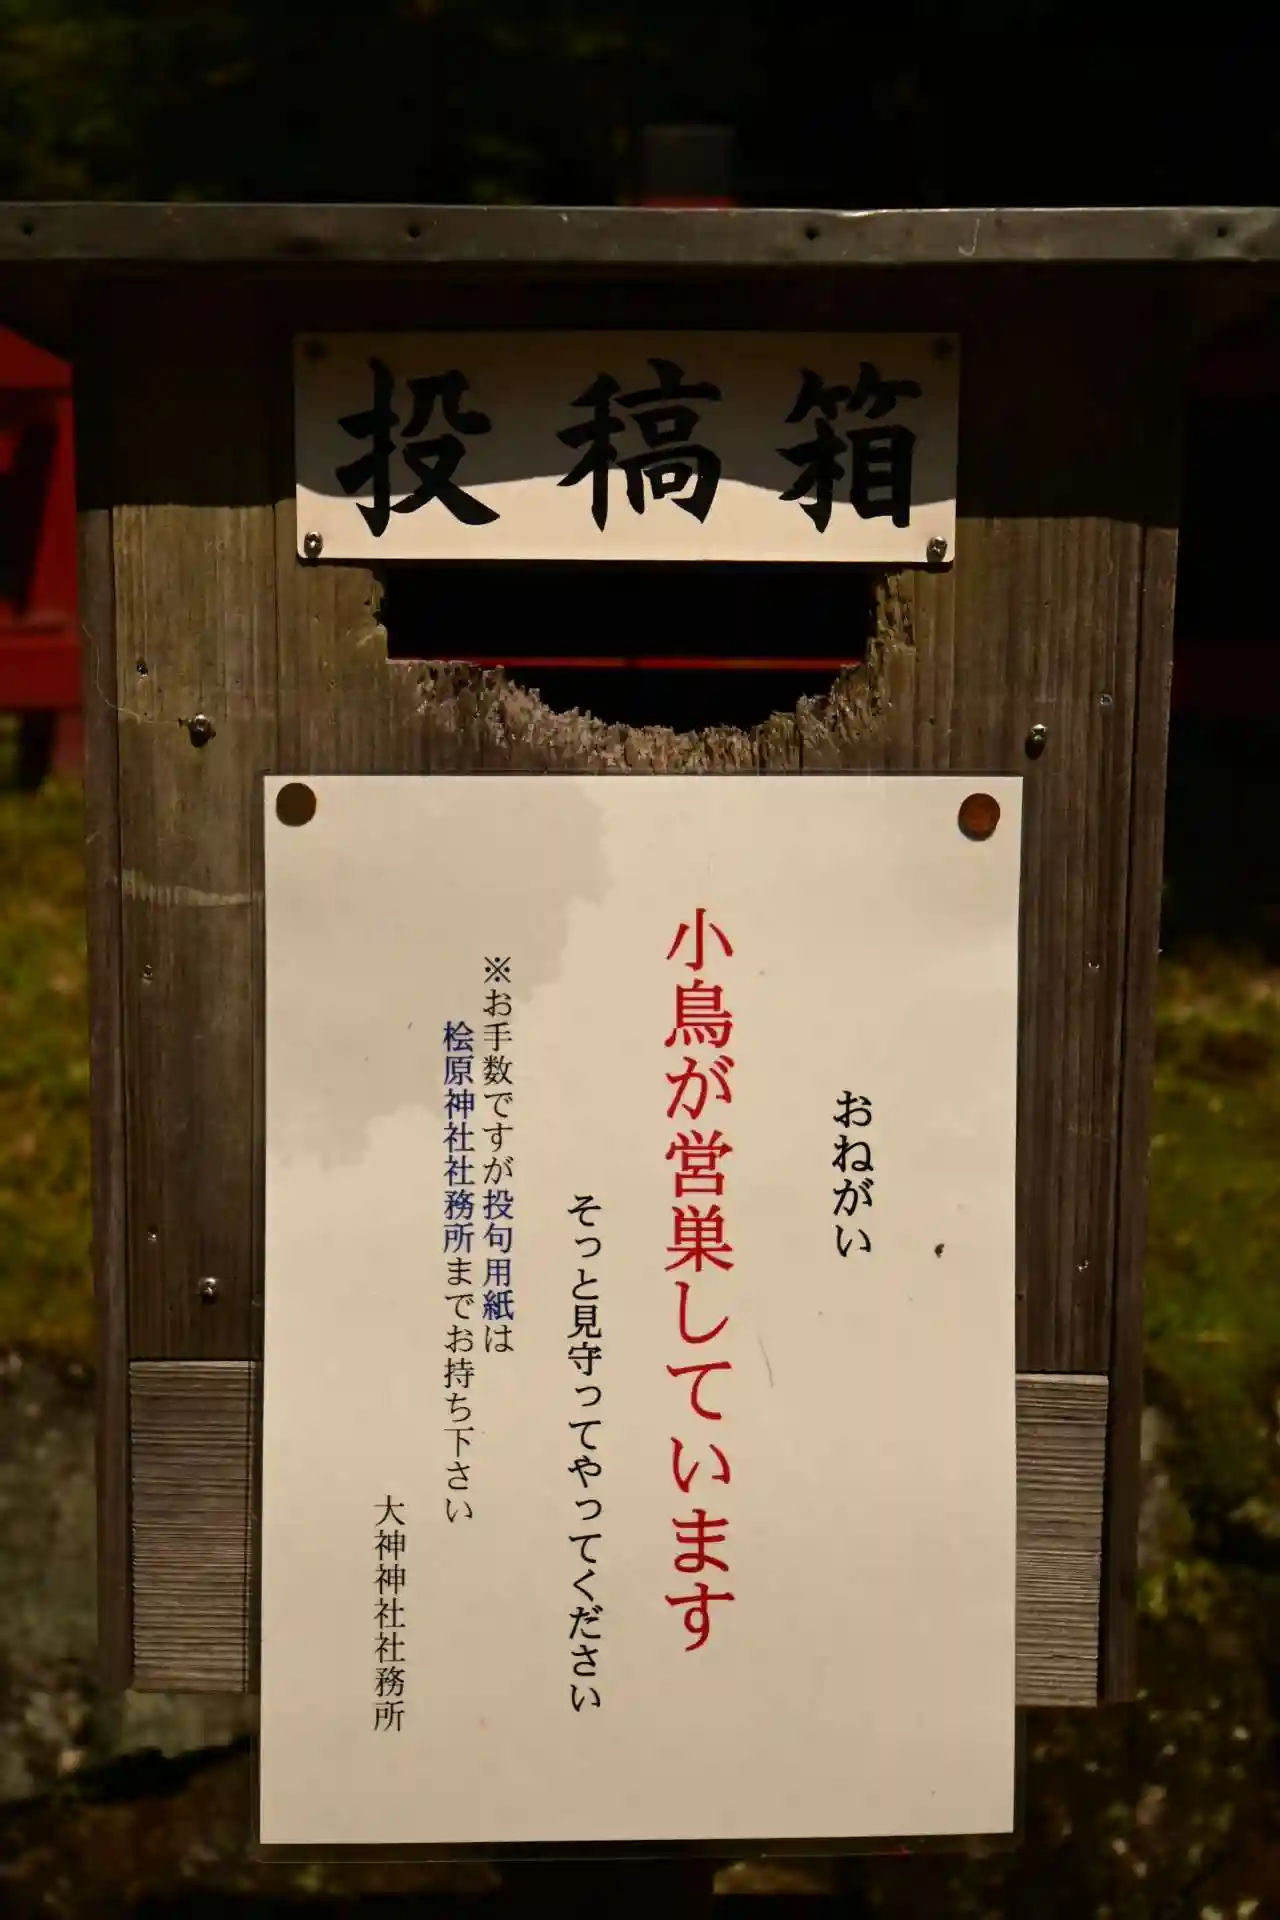 投稿箱
おねがい
小鳥が営巣しています
そっと見守ってやってください
※お手数ですが投句用紙は
桧原神社社務所までお持ち下さい
大神神社社務所